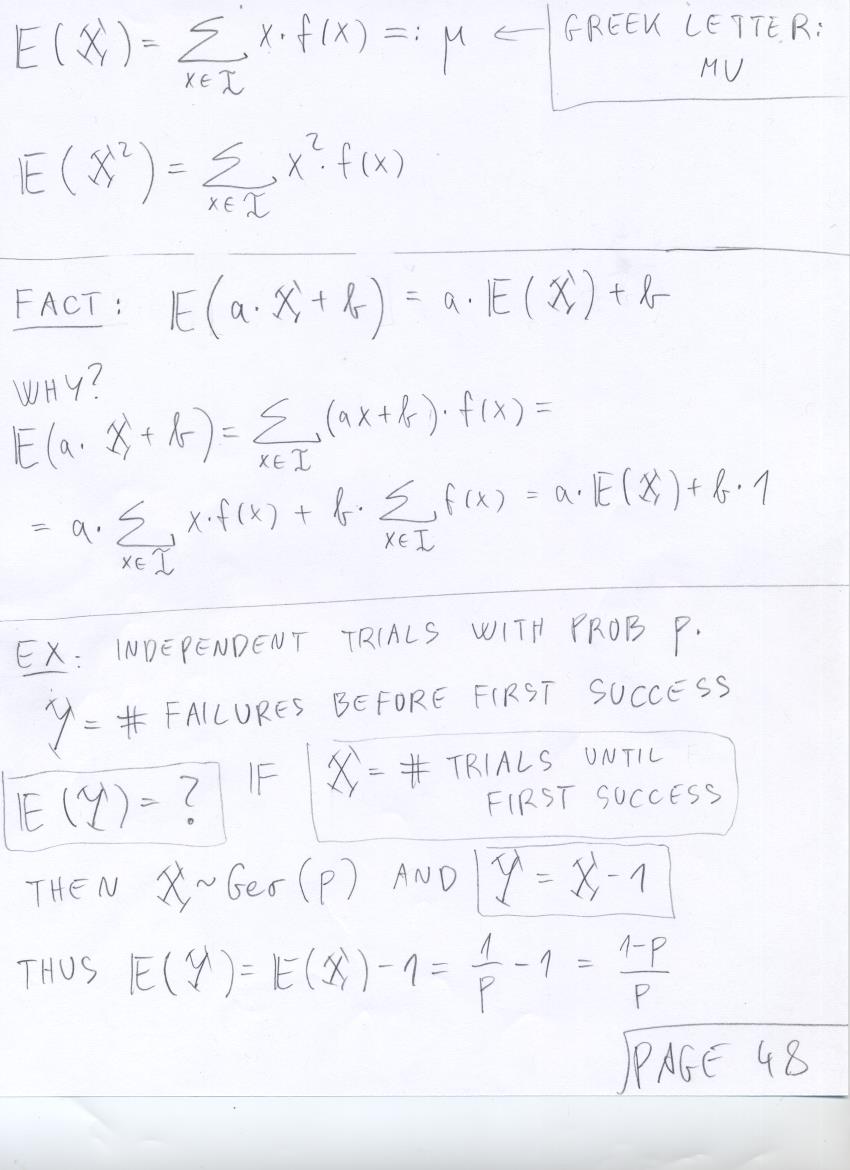 𝔼(X) = ∑_{x∈I} x·f(x) =: μ ← GREEK LETTER:
MU
𝔼(X²) = ∑_{x∈I} x²·f(x)
FACT: 𝔼(a·X + b) = a·𝔼(X) + b
WHY?
𝔼(a·X + b) = ∑_{x∈I} (ax+b)·f(x) =
= a·∑_{x∈I} x·f(x) + b·∑_{x∈I} f(x) = a·𝔼(X) + b·1
EX: INDEPENDENT TRIALS WITH PROB P.
Y = # FAILURES BEFORE FIRST SUCCESS
𝔼(Y) = ? IF X = # TRIALS UNTIL
FIRST SUCCESS
THEN X ~ Geo(p) AND Y = X - 1
THUS 𝔼(Y) = 𝔼(X) - 1 = 1/P - 1 = (1-P)/P
PAGE 48